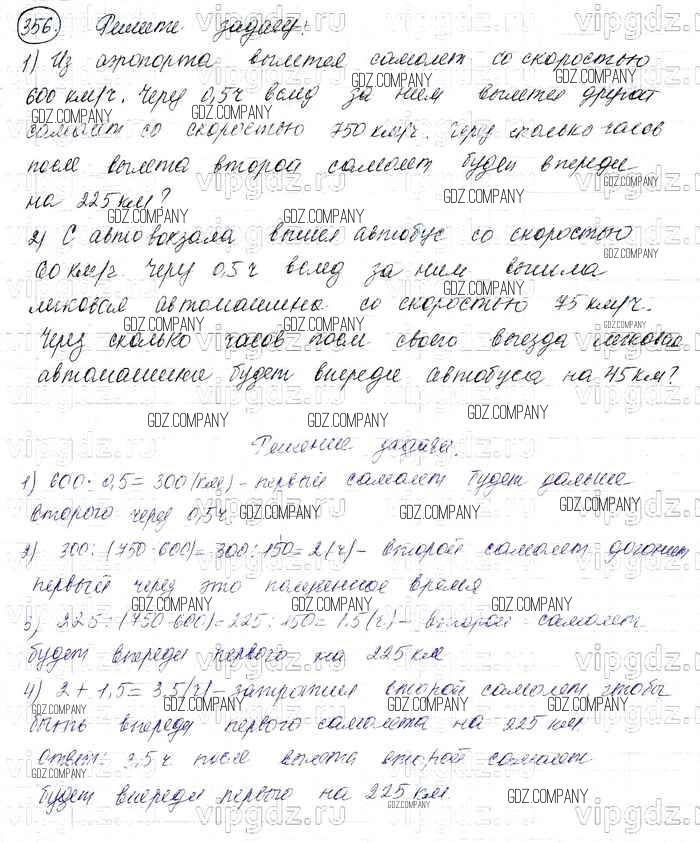 356. Решите задачу:
1) Из аэропорта вылетел самолет со скоростью
600 км/ч. Через 0,5 ч вслед за ним вылетел другой
самолет со скоростью 750 км/ч. Через сколько часов
после вылета второй самолет будет впереди
на 225 км?
2) С автовокзала вышел автобус со скоростью
60 км/ч. Через 0,5 ч вслед за ним вышла
легковая автомашина со скоростью 75 км/ч.
Через сколько часов после своего выезда легковая
автомашина будет впереди автобуса на 45 км?
Решение задачи.
1) 600 · 0,5 = 300 (км) - первый самолет будет дальше
второго через 0,5 ч.
2) 300 : (750-600) = 300 : 150 = 2 (ч) - второй самолет догонит
первый через это полученное время
3) 225 : (750-600) = 225 : 150 = 1.5 (ч) - второй самолет
будет впереди первого на 225 км
4) 2 + 1,5 = 3,5 (ч) - затратил второй самолет, чтобы
быть впереди первого самолета на 225 км
Ответ: 3,5 ч после вылета второй самолет
будет впереди первого на 225 км.